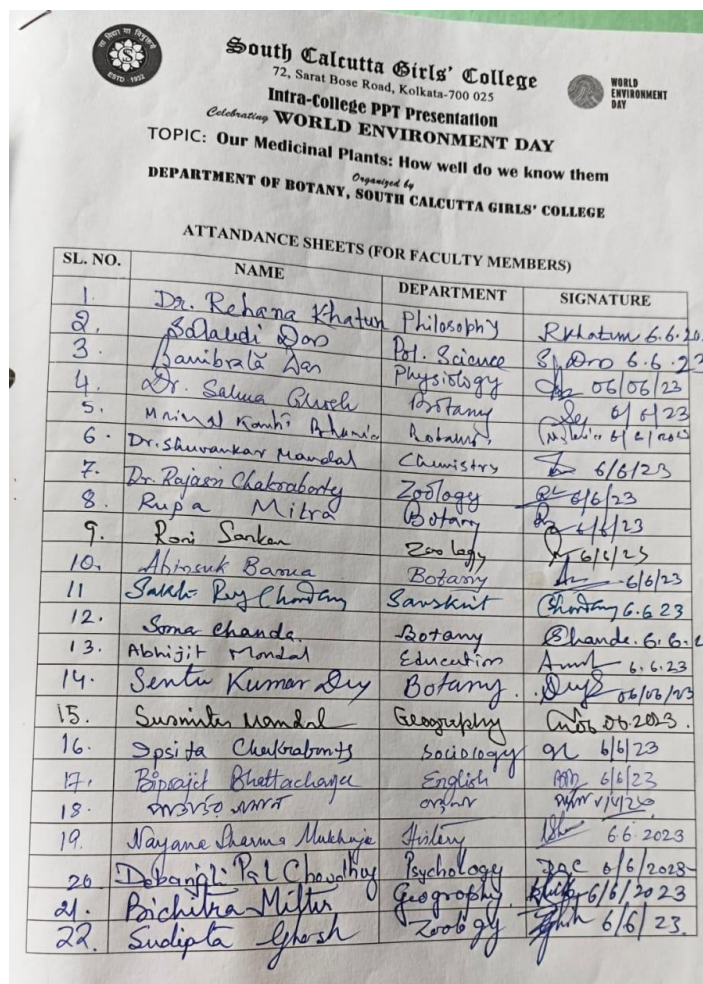 सा विद्या या विमुक्तये
S
ESTD - 1932
South Calcutta Girls' College
72, Sarat Bose Road, Kolkata-700 025
WORLD
ENVIRONMENT
DAY
Intra-College PPT Presentation
Celebrating WORLD ENVIRONMENT DAY
TOPIC: Our Medicinal Plants: How well do we know them
Organized by
DEPARTMENT OF BOTANY, SOUTH CALCUTTA GIRLS' COLLEGE
ATTANDANCE SHEETS (FOR FACULTY MEMBERS)
SL. NO. NAME DEPARTMENT SIGNATURE
1. Dr. Rehana Khatun Philosophy RKhatun 6.6.20
2. Das Pol. Science S Das 6.6.23
3. Das Physiology 06/06/23
4. Dr. Salma Botany 6/6/23
5. Mrinal Kanti Botany
6. Dr. Shuvankar Mandal Chemistry 6/6/23
7. Dr. Rajasri Chakraborty Zoology 6/6/23
8. Rupa Mitra Botany 6/6/23
9. Roni Sarkar Zoology 6/6/23
10. Abhisuk Barua Botany 6/6/23
11 Roy Chowdhury Sanskrit 6.6.23
12. Soma Chanda. Botany Chanda. 6.6.2
13. Abhijit Mondal Education 6.6.23
14. Sentu Kumar Dey Botany. 06/06/23
15. Susmita Mandal Geography 06.2023.
16. Ipsita Chakraborty Sociology 6/6/23
17. Biprajit Bhattacharya English 6/6/23
18.
19. Nayana Sharma Mukherjee History 6.6.2023
20 Debanjli Pal Chowdhury Psychology DPC 6/6/2023
21. Bichitra Mitter Geography 6/6/2023
22. Sudipta Ghosh Zoology 6/6/23.